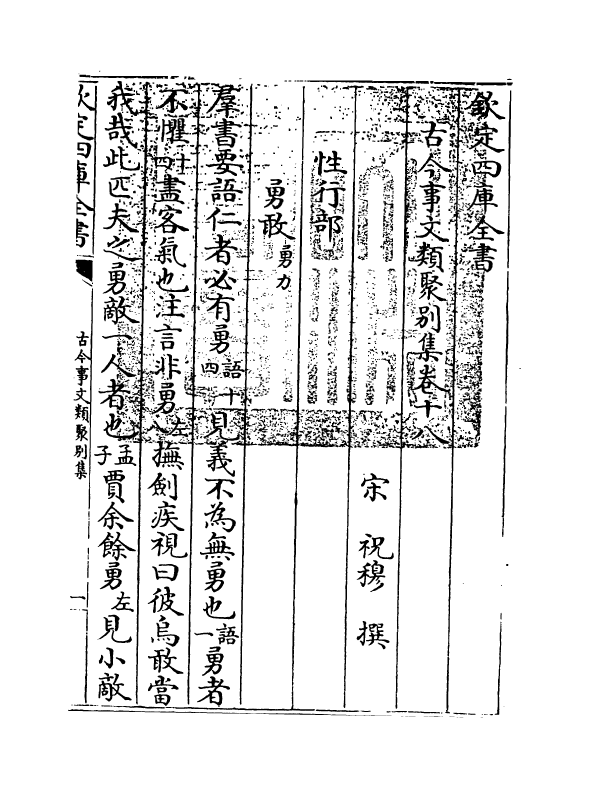 欽定四庫全書
古今事文類聚別集卷十八
宋 祝穆 撰
性行部
勇敢勇力
羣書要語仁者必有勇語十四見義不為無勇也語一勇者
不懼語四盡客氣也注言非勇左八撫劍疾視曰彼烏敢當
我哉此匹夫之勇敵一人者也孟子賈余餘勇左見小敵
欽定四庫全書
古今事文類聚別集
一